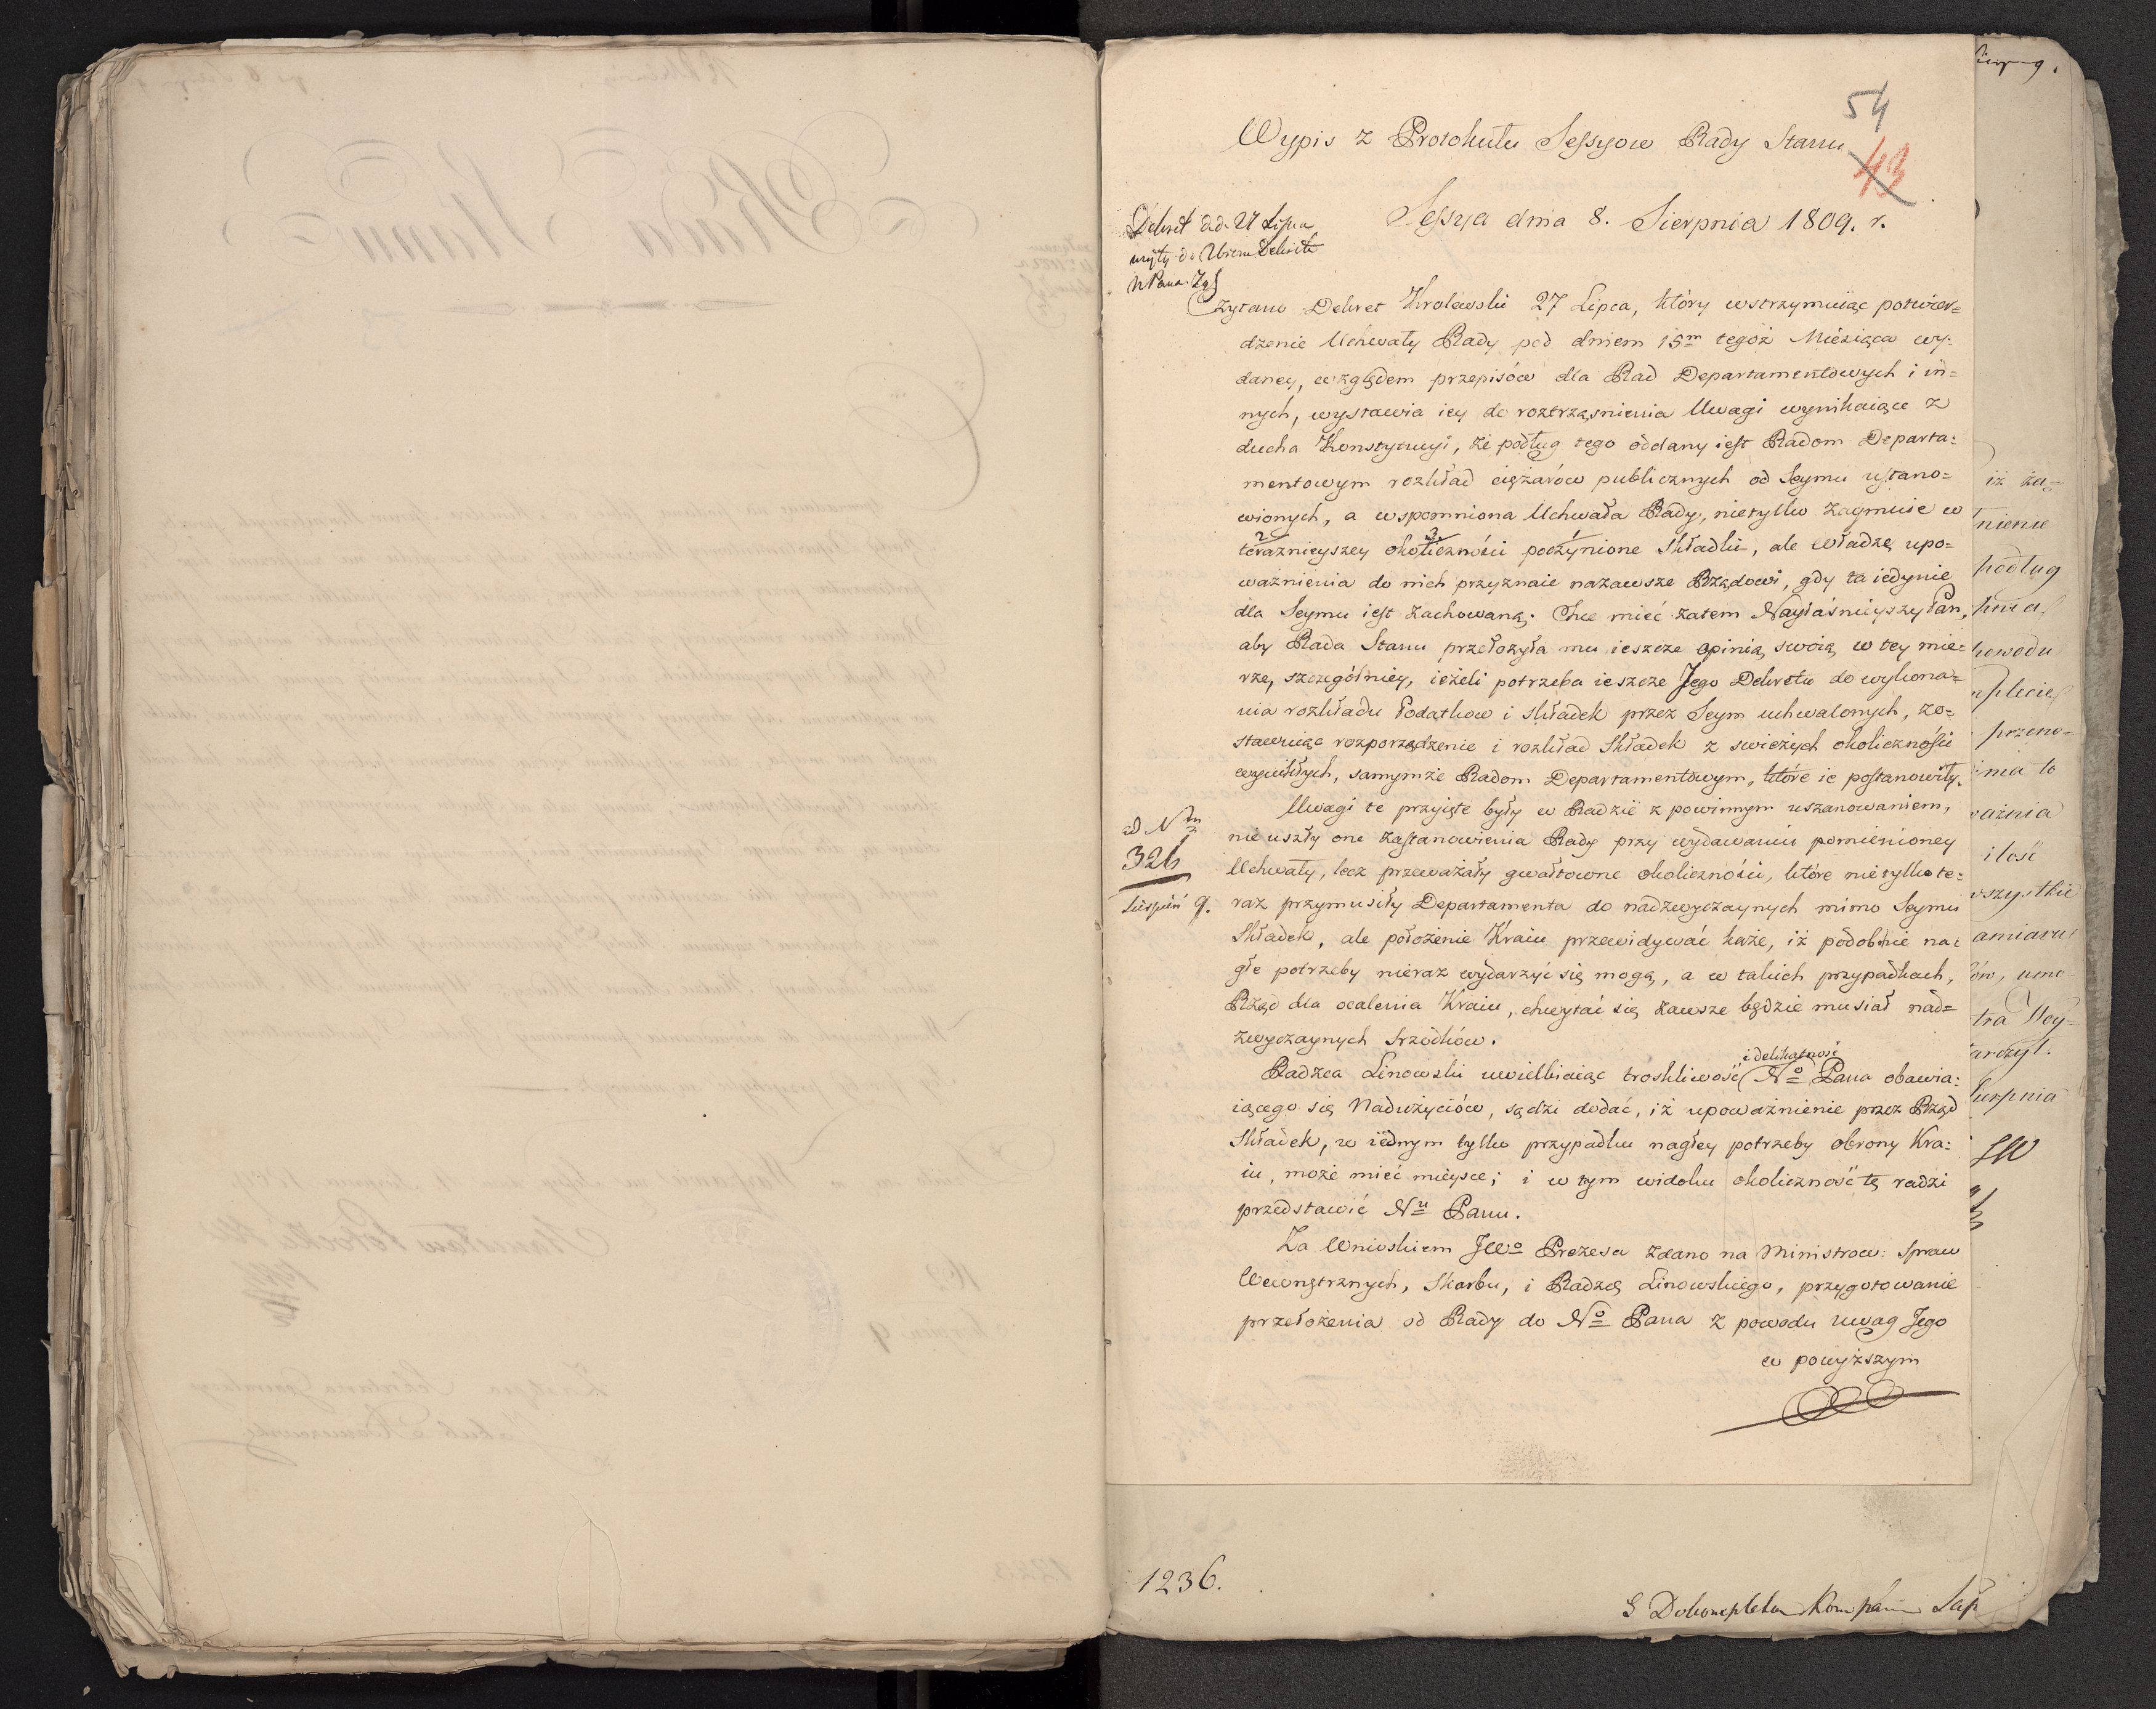 54
Wypis z Protokułu Sessyow Rady Stanu
43
Sessya dnia 8. Sierpnia 1809. r.
Dekret d.d. 27 Lipca
wzięty do Dekretu
N Pana
Czytano Dekret Krolewski 27 Lipca, który wstrzymuiąc potwier=
dzenie Uchwały Rady pod dniem 15m tegoż Miesiąca wy=
daney, względem przepisów dla Rad Departamentowych i in=
nych, wystawia iey do roztrząśnienia Uwagi wynikaiące z
ducha Konstytucyi, że podług tego oddany iest Radom Departa=
mentowym rozkład ciężarów publicznych od Seymu ustano=
wionych, a wspomniona Uchwała Rady, nietylko zaymuie w
2 3 1
teraznieyszey okoliczności poczynione Składki, ale władzę upo=
ważnienia do nich przyznaie nazawsze Rządowi, gdy ta iedynie
dla Seymu iest zachowaną. Chce mieć zatem Nayiaśnieyszy Pan,
aby Rada Stanu przełożyła mu ieszcze opinią swoią w tey mie=
rze, szczególniey, ieżeli potrzeba ieszcze Jego Dekretu do wykona=
nia rozkładu Podatkow i składek przez Seym uchwalonych, zo=
stawuiąc rozporządzenie i rozkład Składek z swieżych okoliczności
wynikłych, samymże Radom Departamentowym, które ie postanowiły.
Uwagi te przyięte były w Radzie z powinnym uszanowaniem,
nie uszły one zastanowienia Rady przy wydawaniu pomienioney
Uchwały, lecz przeważały gwałtowne okoliczności, które nietylko te=
raz przymusiły Departamenta do nadzwyczaynych mimo Seymu
Składek, ale położenie Kraiu przewidywać każe, iż podobnie na=
głe potrzeby nieraz wydarzyć się mogą, a w takich przypadkach,
Rząd dla ocalenia Kraiu, chwytać się zawsze będzie musiał nad=
zwyczaynych srzodków.
ad Nrm
326
Sierpień 9.
i delikatność
Radzca Linowski uwielbiaiąc troskliwość No Pana obawia=
iącego się Nadużyciów, sądzi dodać, iż upoważnienie przez Rząd
Składek, w iednym tylko przypadku nagłey potrzeby obrony Kra=
iu, może mieć mieysce; i w tym widoku okoliczność tę radzi
przedstawić Nu Panu.
Za Wnioskiem JWo Prezesa zdano na Ministrow: Spraw
Wewnętrznych, Skarbu, i Radzcę Linowskiego, przygotowanie
przełożenia od Rady do No Pana z powodu uwag Jego
w powyższym
1236.
iż za=
nienie
podług
powodu
przeno=
ima to
ważnia
ilość
wszystkie
amiaru
ów, umo=
tra
arczył.
Sierpnia